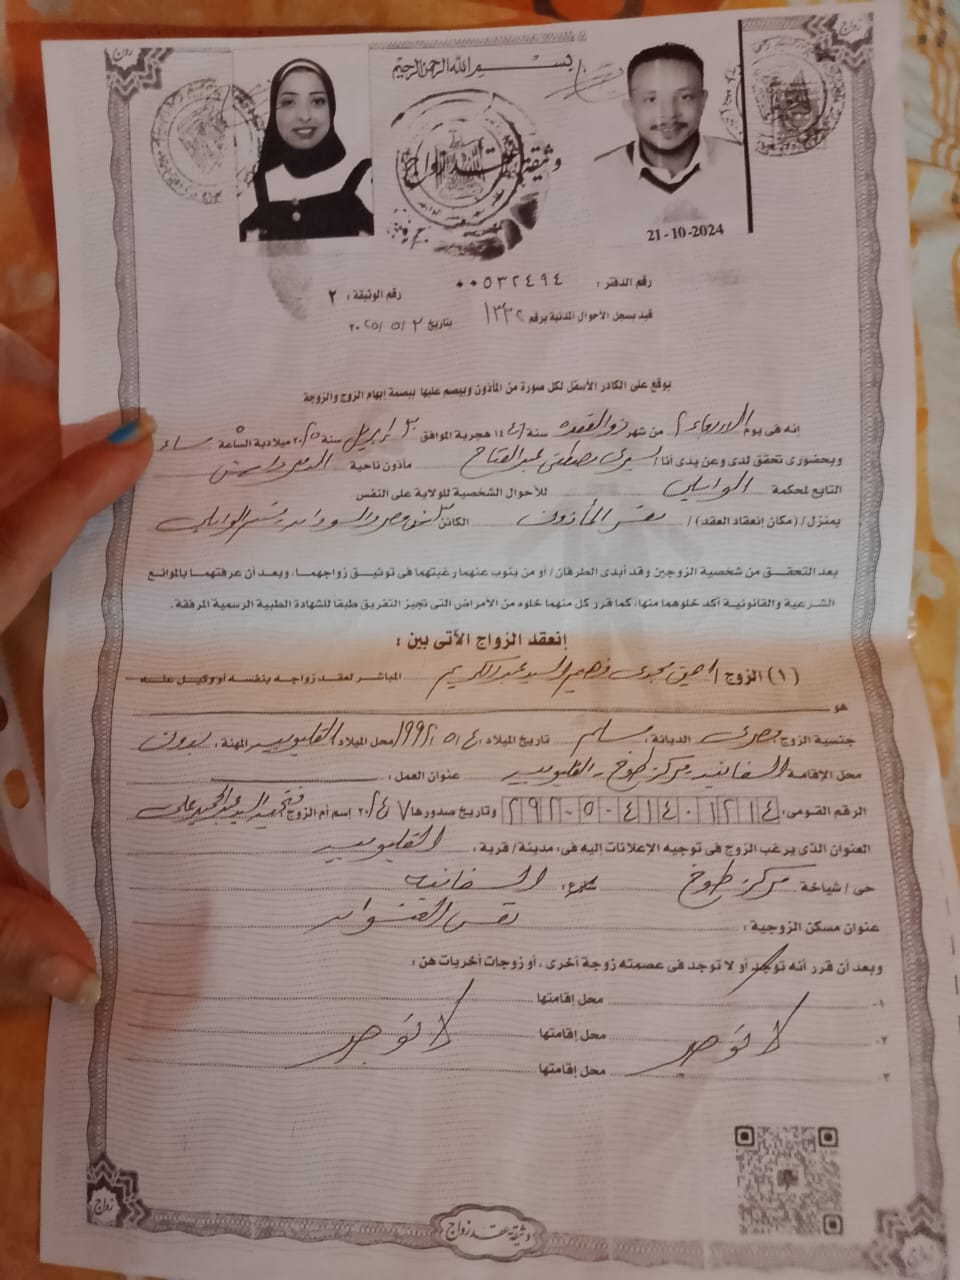 زواج
زواج
بسم الله الرحمن الرحيم
وثيقة عقد زواج
21-10-2024
رقم الدفتر : ٠٠٥٣٢٤٩٤
رقم الوثيقة : ٢
قيد بسجل الأحوال المدنية برقم ١٣٣٢ بتاريخ ٢ /٥ /٢٠٢٥
يوقع على الكادر الأسفل لكل صورة من المأذون ويبصم عليها ببصمة إبهام الزوج والزوجة
إنه فى يوم الاربعاء ٢ من شهر ذو القعده سنة ١٤٤٦ هجرية الموافق ٣٠ ابريل سنة ٢٠٢٥ ميلادية الساعة ٥ مساء
وبحضورى تحقق لدى وعن يدى أنا / يسرى مصطفى عبد الفتاح مأذون ناحية الدمرداش
التابع لمحكمة الوايلى للأحوال الشخصية للولاية على النفس
بمنزل / (مكان إنعقاد العقد) / مقر المأذون الكائن مصر والسودان قسم الوايلى
بعد التحقق من شخصية الزوجين وقد أبدى الطرفان / أو من ينوب عنهما رغبتهما فى توثيق زواجهما، وبعد أن عرفتهما بالموانع
الشرعية والقانونية أكد خلوهما منها، كما قرر كل منهما خلوه من الأمراض التى تجيز التفريق طبقا للشهادة الطبية الرسمية المرفقة.
إنعقد الزواج الأتى بين :
(١) الزوج / مجدى فهيم السيد عبد الكريم المباشر لعقد زواجه بنفسه أو وكيل عنه
هو
جنسية الزوج : مصرى الديانة : مسلم تاريخ الميلاد : ٤ /٥ /١٩٩٢ محل الميلاد : القليوبيه المهنة : بدون
محل الإقامة : السفانيه - مركز طوخ - القليوبيه عنوان العمل :
الرقم القومى : ٢٩٢٠٥٠٤١٤٠١٢١٤ وتاريخ صدورها إسم أم الزوج : فتحيه السيد عبد الحميد على
العنوان الذى يرغب الزوج فى توجيه الإعلانات إليه فى : مدينة / قرية : القليوبيه
حى / شياخة مركز طوخ شارع : السفانيه
عنوان مسكن الزوجية : نفس العنوان
وبعد أن قرر أنه توجد أو لا توجد فى عصمته زوجة أخرى ، أو زوجات أخريات هن :
١- محل إقامتها
٢- لا توجد محل إقامتها لا توجد
٣- محل إقامتها
زواج
وثيقة عقد زواج
زواج